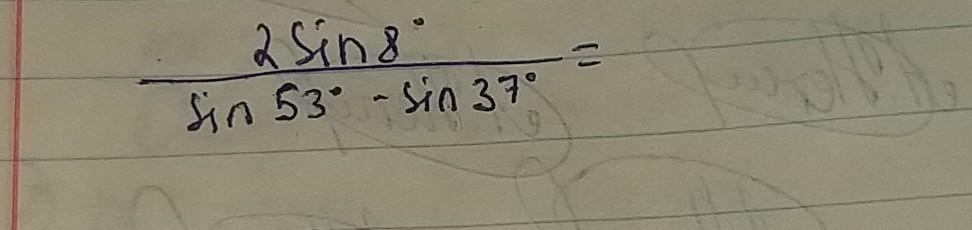 2 Sin 8°
sin 53° - sin 37° =